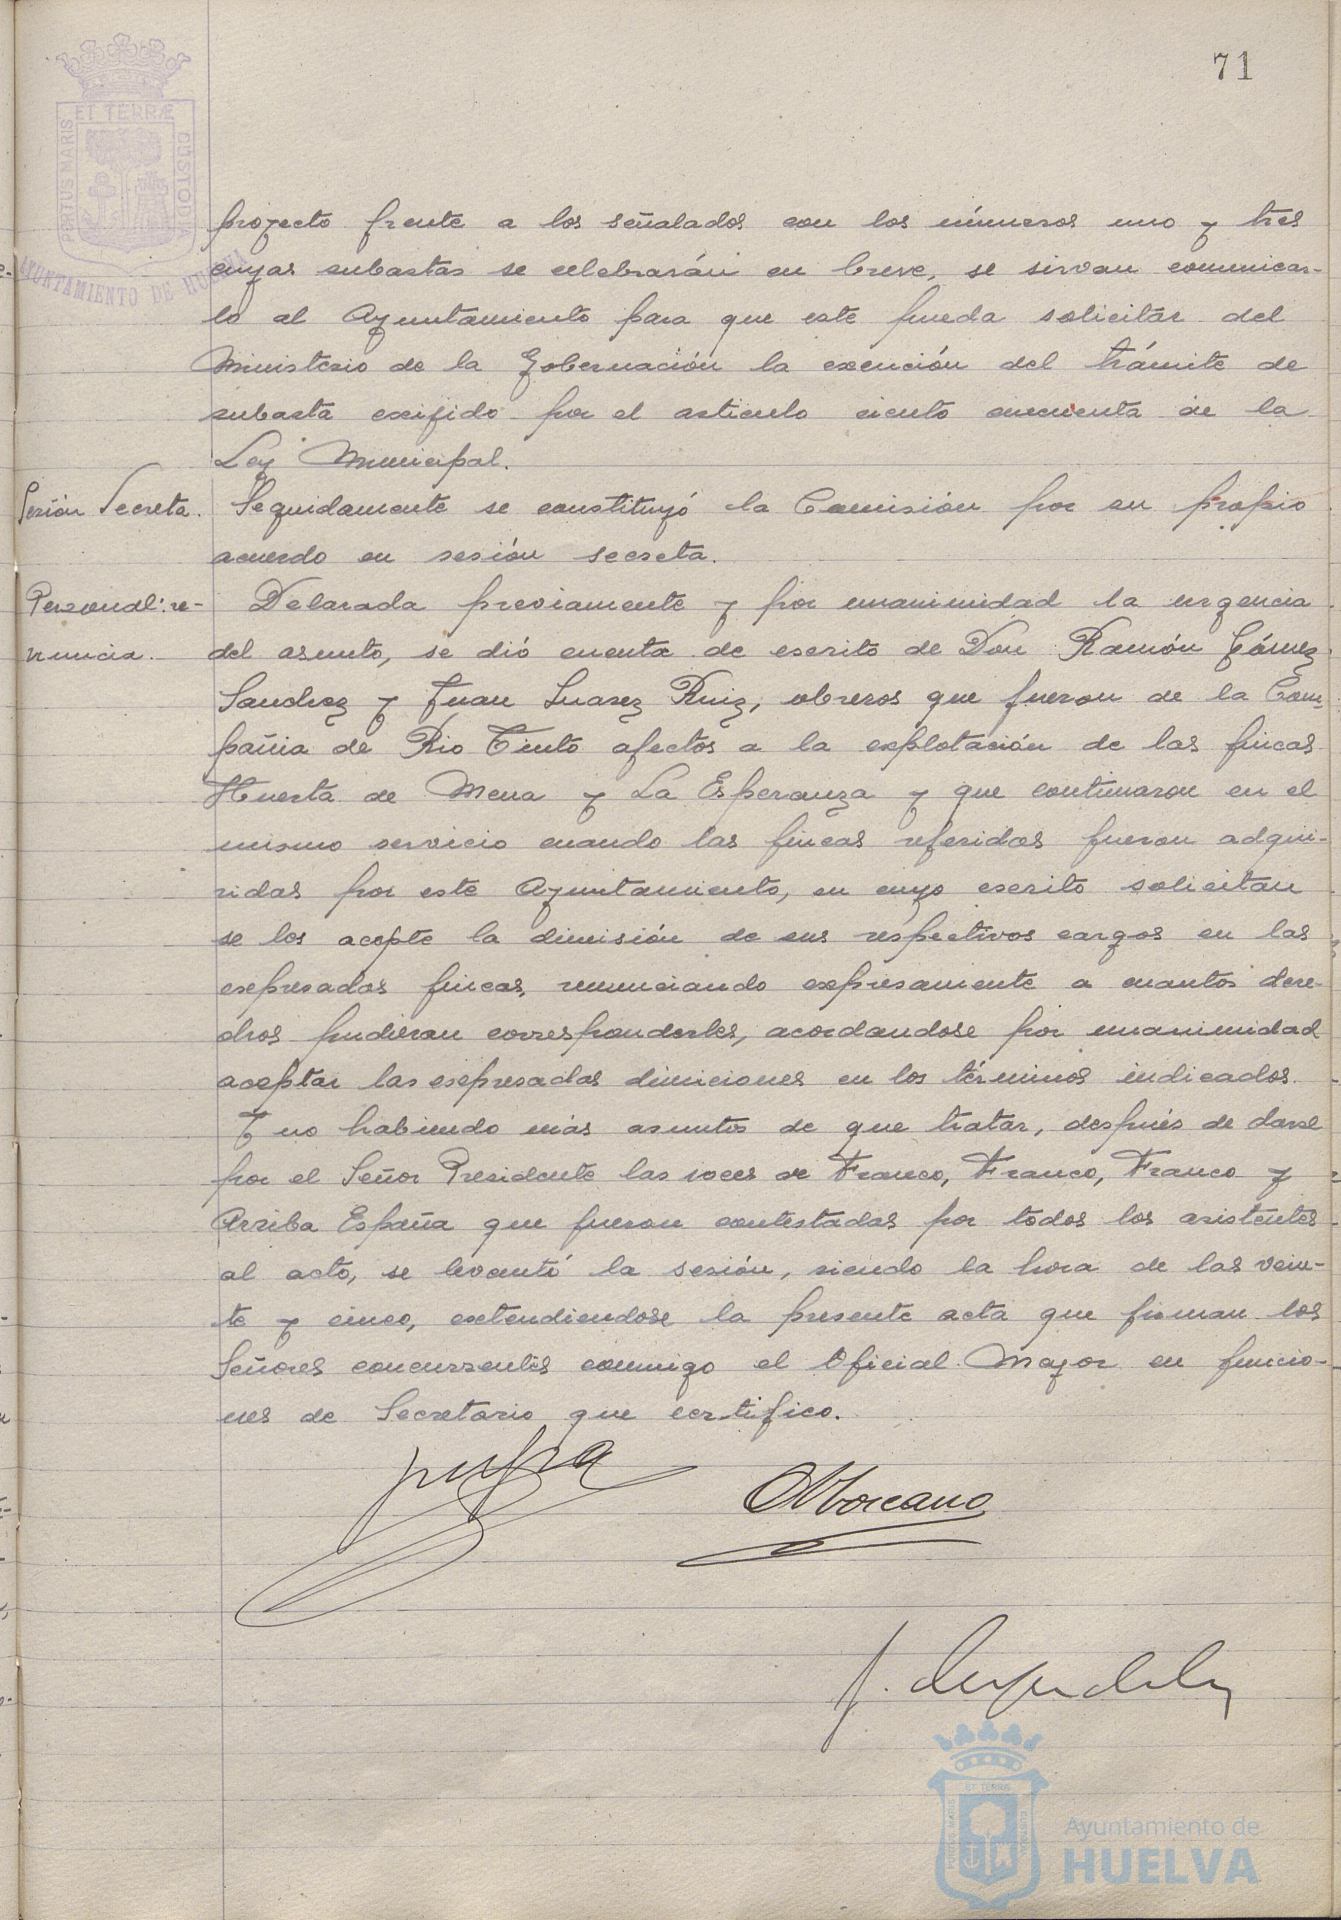 71
PORTUS MARIS ET TERRÆ CUSTODIA
AYUNTAMIENTO DE HUELVA
proyecto frente a los señalados con los números uno y tres
cuyas subastas se celebrarán en breve, se sirvan comunicar-
lo al Ayuntamiento para que este pueda solicitar del
Ministerio de la Gobernación la exención del trámite de
subasta exijido por el articulo ciento cincuenta de la
Ley Municipal.
Sesión Secreta.
Seguidamente se constituyó la Comisión por su propio
acuerdo en sesión secreta.
Personal: re-
nuncia.
Delarada previamente y por unanimidad la urgencia
del asunto, se dió cuenta de escrito de Don Ramón Gómez
Sanchez y Juan Suarez Ruiz, obreros que fueron de la Com-
pañia de Rio Tinto afectos a la explotación de las fincas
Huerta de Mena y La Esperanza y que continuaron en el
mismo servicio cuando las fincas referidas fueron adqui-
ridas por este Ayuntamiento, en cuyo escrito solicitan
se les acepte la dimisión de sus respectivos cargos en las
expresadas fincas, renunciando expresamente a cuantos dere-
chos pudieran corresponderles, acordandose por unanimidad
aceptar las expresadas dimiciones en los términos indicados.
Y no habiendo más asuntos de que tratar, después de darse
por el Señor Presidente las voces de Franco, Franco, Franco y
Arriba España que fueron contestadas por todos los asistentes
al acto, se levantó la sesión, siendo la hora de las vein-
te y cinco, extendiendose la presente acta que firman los
Señores concurrentes conmigo el Oficial Mayor en funcio-
nes de Secretario que certifico.
Ayuntamiento de
HUELVA